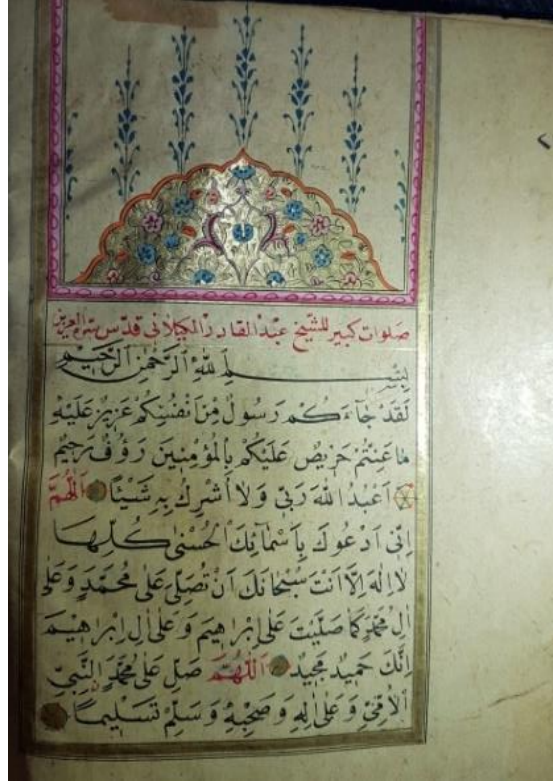 صلوات كبير للشيخ عبد القادر الكيلانى قدس سره العزيز
بِسْمِ اللهِ الرَّحْمٰنِ الرَّحِيمِ
لَقَدْ جَاءَكُمْ رَسُولٌ مِنْ اَنْفُسِكُمْ عَزِيزٌ عَلَيْهِ
مَا عَنِتُّمْ حَرِيصٌ عَلَيْكُمْ بِالْمُؤْمِنِينَ رَؤُفٌ رَحِيمٌ
اَعْبُدُ اللهَ رَبِّى وَلَا اُشْرِكُ بِهِ شَيْئًا اَللّٰهُمَّ
اِنِّى اَدْعُوكَ بِاَسْمَائِكَ الْحُسْنٰى كُلِّهَا
لَا اِلٰهَ اِلَّا اَنْتَ سُبْحَانَكَ اَنْ تُصَلِّىَ عَلٰى مُحَمَّدٍ وَعَلٰى
اٰلِ مُحَمَّدٍ كَمَا صَلَّيْتَ عَلٰى اِبْرٰهِيمَ وَعَلٰى اٰلِ اِبْرٰهِيمَ
اِنَّكَ حَمِيدٌ مَجِيدٌ اَللّٰهُمَّ صَلِّ عَلٰى مُحَمَّدٍ النَّبِىِّ
الْاُمِّىِّ وَعَلٰى اٰلِهِ وَصَحْبِهِ وَسَلِّمْ تَسْلِيمًا